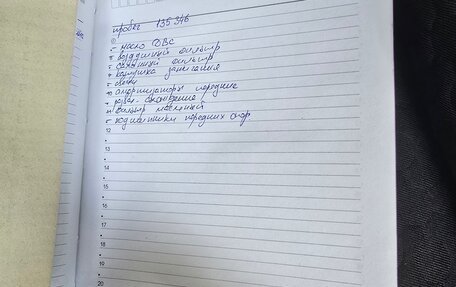 пробег 135346
①
масло ДВС
воздушный фильтр
салонный фильтр
катушка зажигания
свечи
амортизаторы передние
фильтр масляный
подшипники передних опор
12
15
20